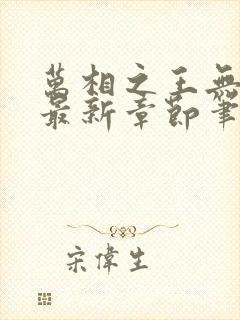 萬相之王無
最新章節筆
宋偉生